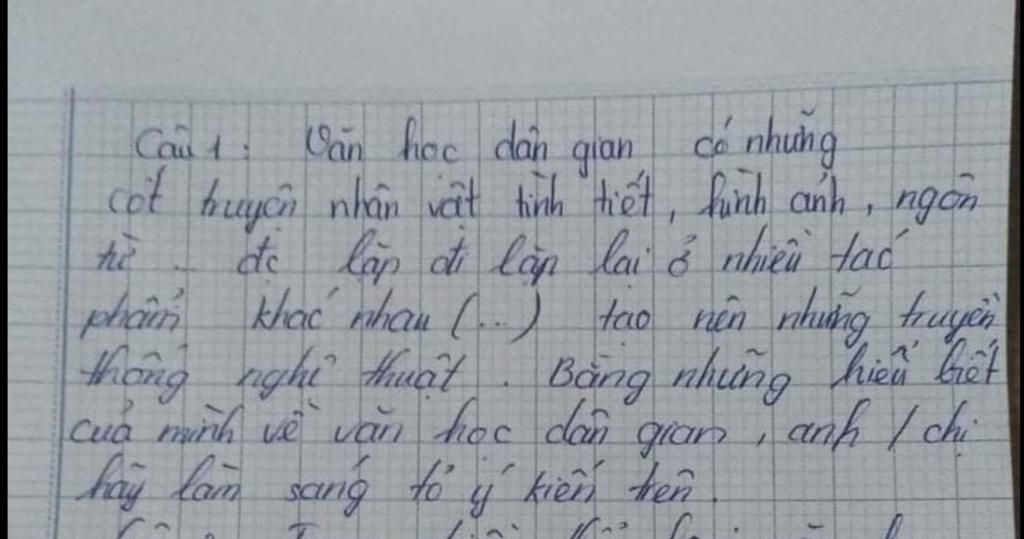 Câu 1: Văn học dân gian có những
cốt truyện nhân vật tình tiết, hình ảnh, ngôn
từ ... đc lặp đi lặp lại ở nhiều tác
phẩm khác nhau (...) tạo nên những truyền
thống nghệ thuật. Bằng những hiểu biết
của mình về văn học dân gian, anh / chị
hãy làm sáng tỏ ý kiến trên.